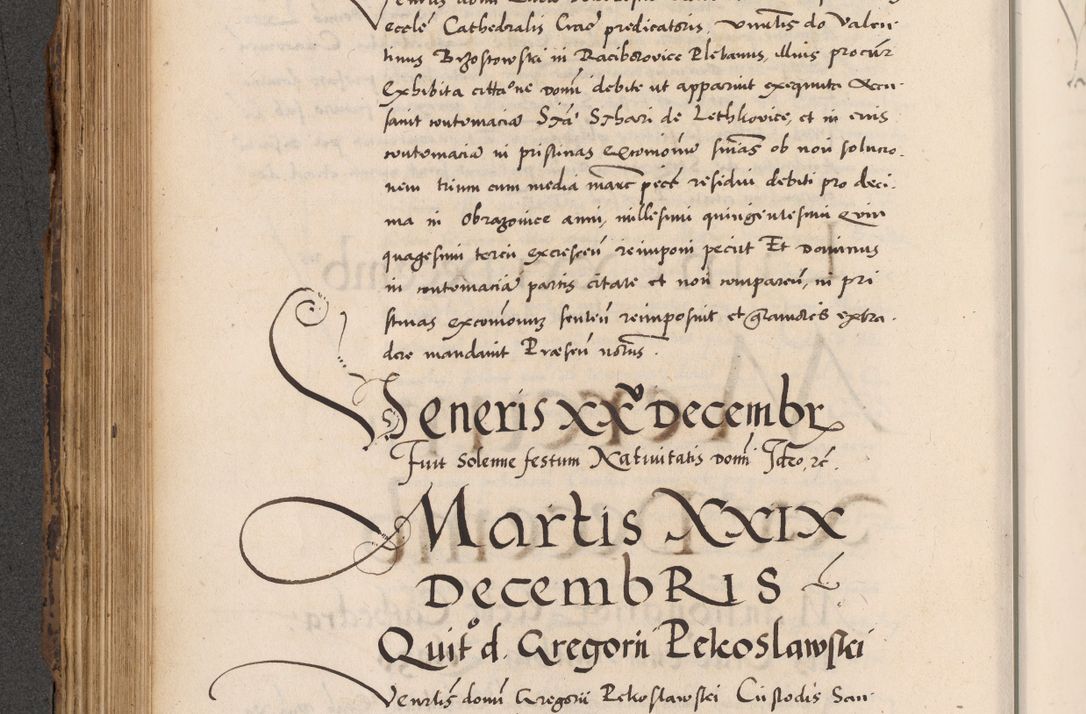 ecclē Cathedralis Crac̄ predicatoris, Vnāl̄is do Valen
tinus Brzostowski in Raciborovice Plebanus, illius procūr
Exhibita cittaōne domi debite ut apparuit exequuta Accu
sauit contumaciā Stā Schari de Lethkovice, et in eius
contumaciā in pristinas Excomōnis snīas ob non solucio
nem trium cum media marc̄ pecc̄ residui debiti pro deci
ma in Obrazonice anni, millesimi quingentesimi Quin
quagesimi tercii excrescēn reimponi peciit Et Dominus
in contumaciā partis citate et non comparēn, in pri
stinas excomōnis sentēn reimposuit et grauiores extra
dere mandauit Præsēn notus.
Veneris XXV Decembr
Fuit Solenne festum Natiuitatis Domi Ideo, rc̄.
Martis XXIX
DecembRIS
Quit° d. Gregorii Pekoslawski
Venerlīs domi Gregorii Pekoslawski Custodis San